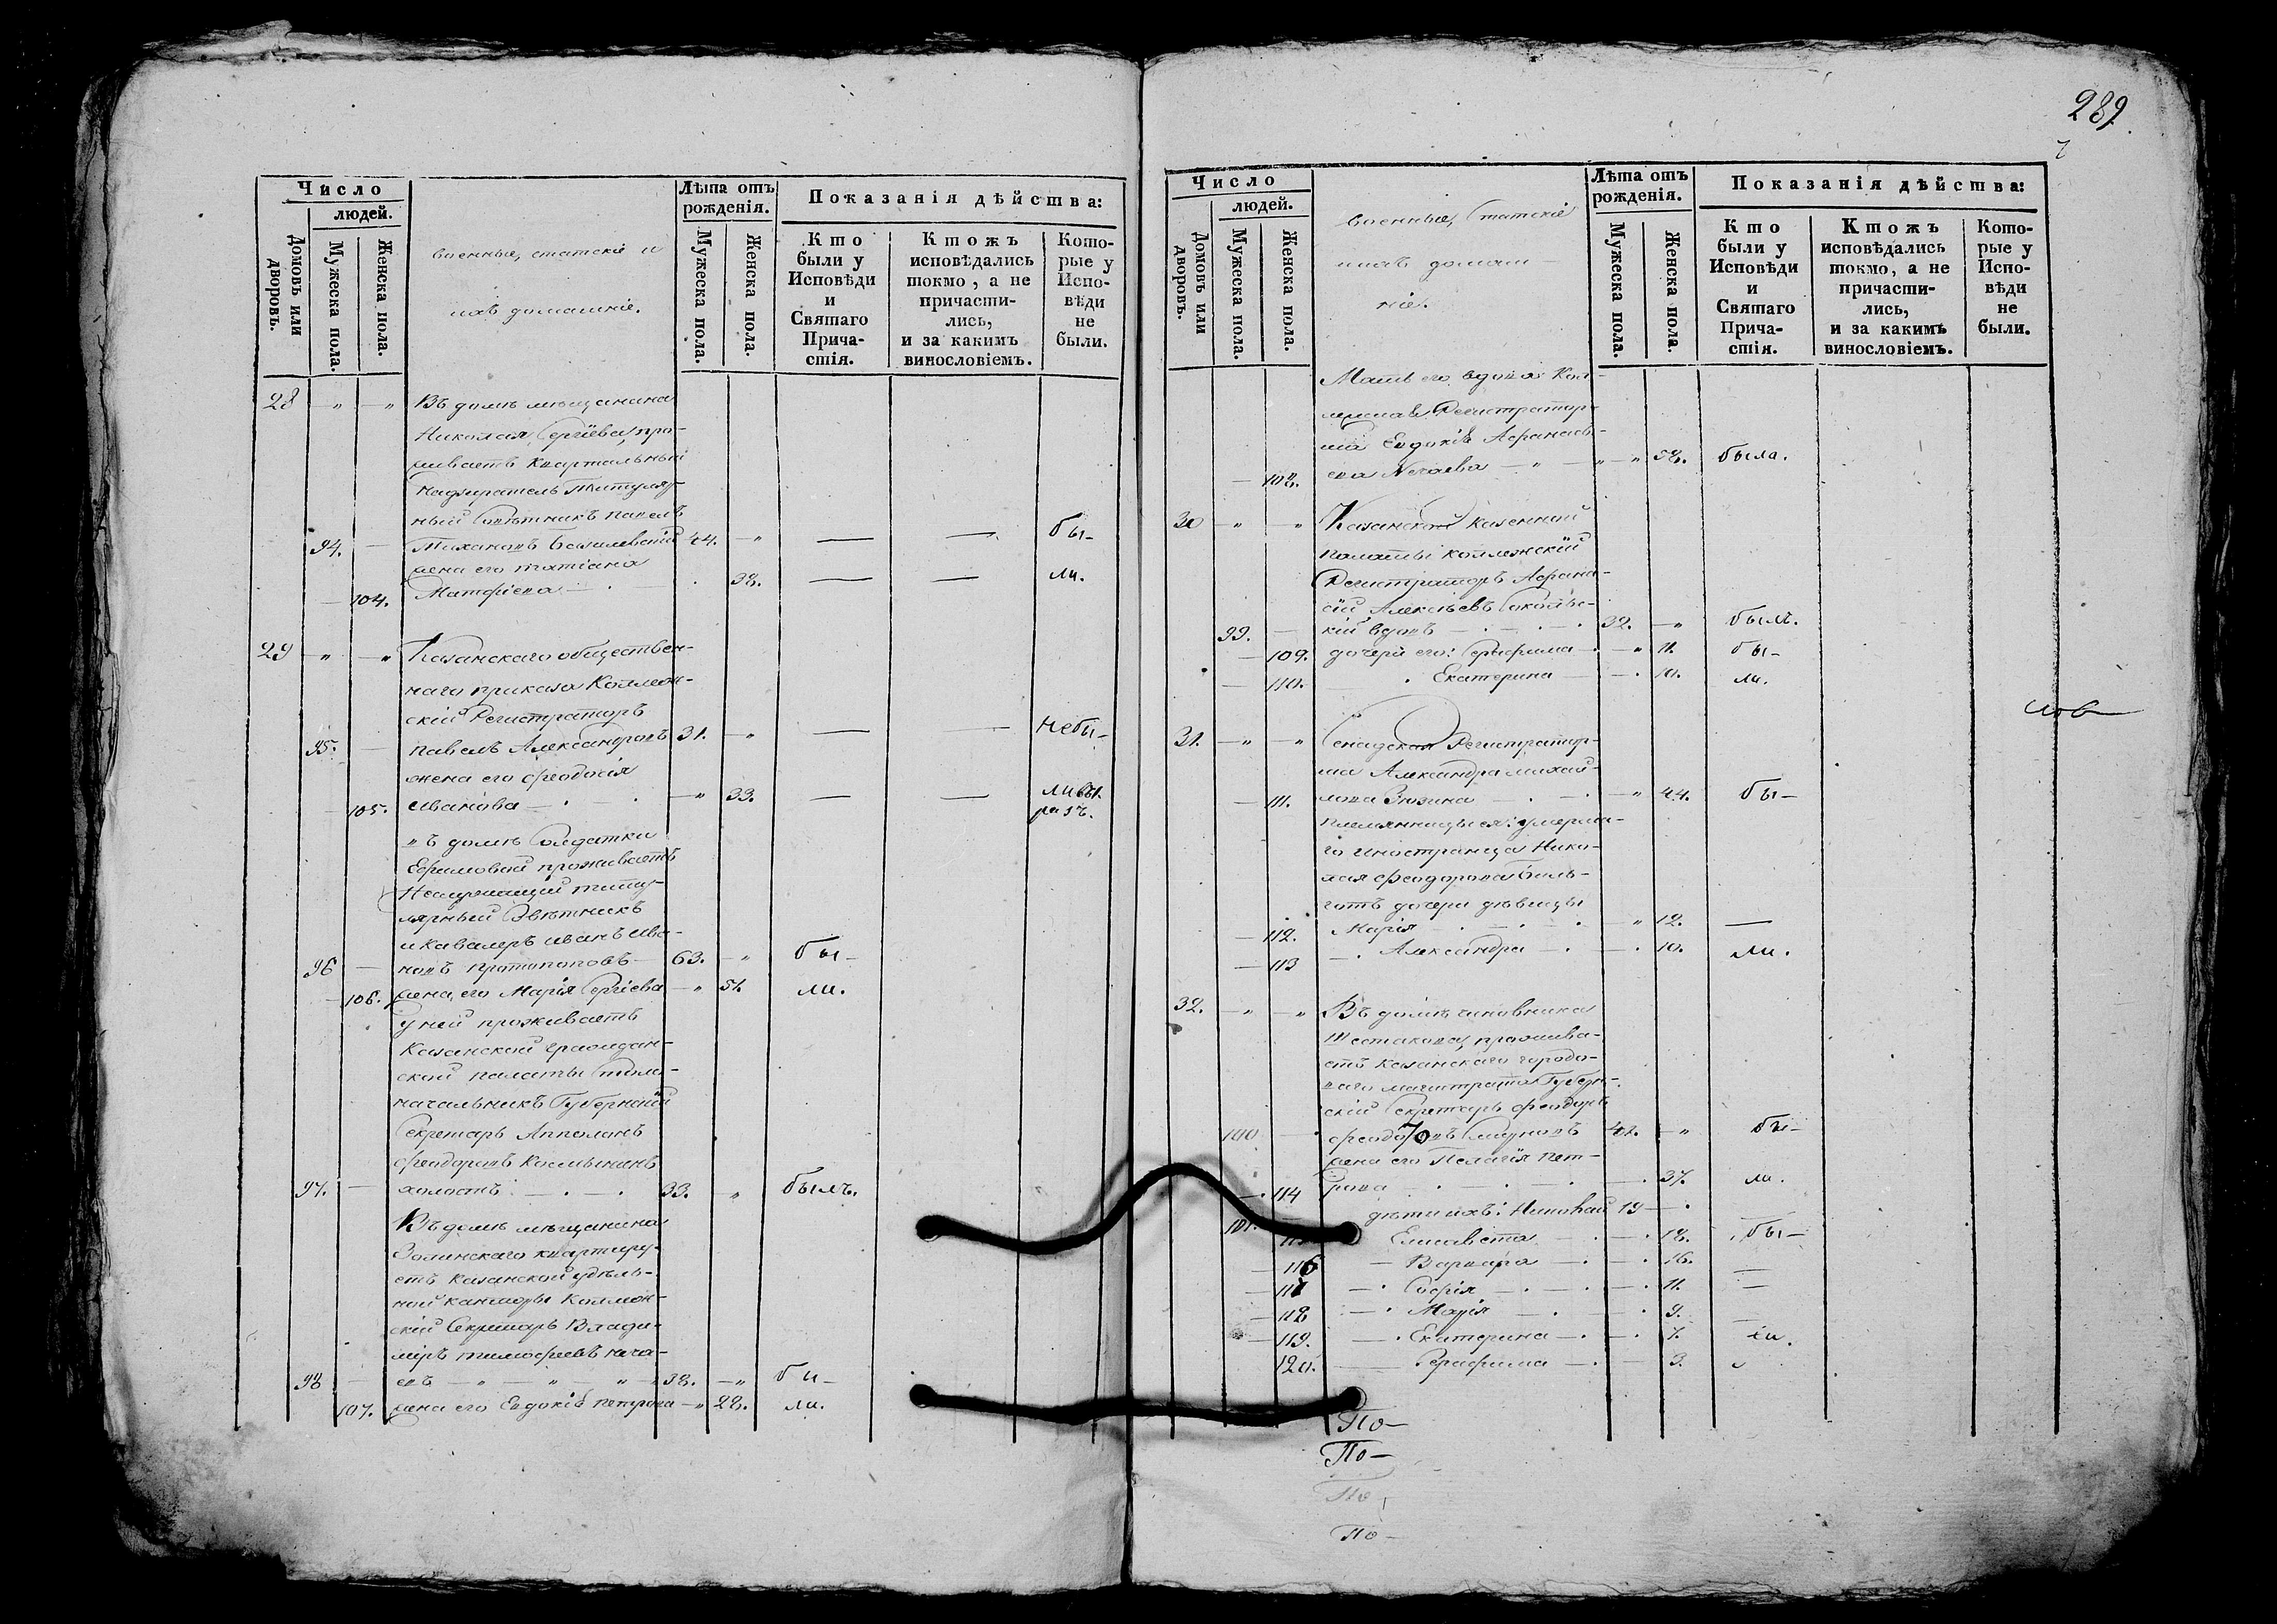 289.
Число
людей.
Домовъ или дворовъ.
Мужеска пола.
Женска пола.
военные, статскіе и
ихъ домашніе.
Лѣта отъ рожденія.
Мужеска пола.
Женска пола.
Показанія дѣйства:
Кто были у Исповѣди и Святаго Прича-стія.
Ктожъ исповѣдались токмо, а не причасти-лись, и за какимъ винословіемъ.
Кото-рые у Испо-вѣди не были.
28 — „ — „ Въ домѣ мѣщанина
Николая Сергіева, про-
живаетъ квартальный
надзиратель Титуляр-
ный Совѣтникъ Павелъ
94. — Тихановъ 44. — „ — — бы-
жена его Татіана
— 104. Матфіева — 38. — — ли.
29 — „ — „ Казанскаго обществен-
наго приказа Коллеж-
скій Регистраторъ
95. — Павелъ Александровъ 31. — „ — — небы-
жена его Феодосія
— 105. Иванова — — „ 33. — — ли
разъ.
въ домѣ Солдатки
Ефимовой проживаетъ
титу-
лярный Совѣтникъ
и кавалеръ Иванъ Ива-
96 — новъ Протопоповъ — 63. — „ бы-
— 106. жена его Марія Сергіева — „ 51. ли.
у ней проживаетъ
Казанской Граждан-
ской палаты Столо-
начальникъ Губернскій
Секретарь Апполонъ
Феодоровъ
97. — холостъ — 33. „ былъ.
Въ домѣ мѣщанина
квартиру-
етъ Казанской удѣль-
ной канторы Коллеж-
скій Секретарь Влади-
міръ Тимофеевъ Неча-
98 — евъ — „ — „ — „ 38. — „ бы-
107. жена его Евдокія Петрова — „ 28. ли.
Число
людей.
Домовъ или дворовъ.
Мужеска пола.
Женска пола.
военные, статскіе
ихъ домаш-
ніе.
Лѣта отъ рожденія.
Мужеска пола.
Женска пола.
Показанія дѣйства:
Кто были у Исповѣди и Святаго Прича-стія.
Ктожъ исповѣдались токмо, а не причасти-лись, и за какимъ винословіемъ.
Кото-рые у Испо-вѣди не были.
Мать его вдова Кол-
лежская Регистратор-
ша Евдокія Афанась-
— 108. ева Нечаева — „ — „ — „ 58. была.
30 — „ — „ Казанской казенной
палаты коллежскій
Регистраторъ Афана-
сій Алексѣевъ
99. — кій вдовъ — 32. — „ былъ.
— 109. дочери его: Серафима — „ 11. бы-
— 110. Екатерина — 10. ли.
31. — „ — „ Сенадская Регистратор-
ша Александра Михай-
— 111. лова — „ 44. бы-
племянницы ея: умерша-
го иностранца Нико-
лая Феодорова
дочери дѣвицы
— 112. Марія — „ 12. —
— 113 Александра — 10. ли.
32. — „ — „ Въ домѣ чиновника
Шестакова, прожива-
етъ Казанскаго городо-
ваго магистрата Губерн-
скій Секретарь Феодоръ
100 — Феодоровъ 42. — „ бы-
жена его Пелагія Пет-
— 114 рова — 37. ли.
101. дѣти ихъ: Николай 19 —
Елисавета — 18. бы-
— 116 Варвара — 16. —
— 117 Софія — 11. —
— 118 Марія — 9. —
— 119. Екатерина — 7. ли.
120. Серафима — 3.
По-
По-
По
По-